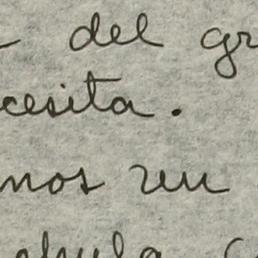 del gr
cesita.
mos un